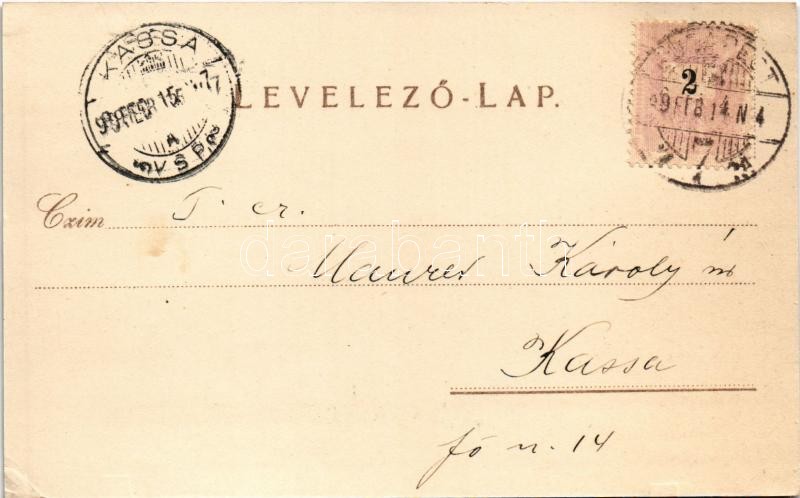 KASSA
99 FEB 15
LEVELEZŐ-LAP.
2
99 FEB 14 N 4
Czim T. cz.
Maurer Károly úr
Kassa
fő u. 14
darabanth